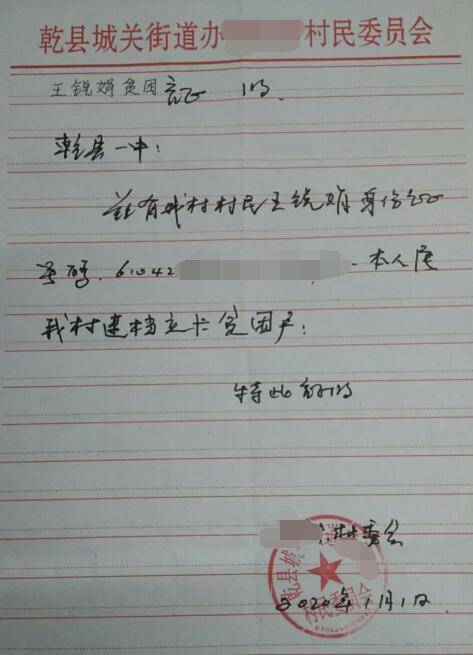 乾县城关街道办 村民委员会
王锐娟贫困证 明
乾县一中：
兹有我村村民王锐娟身份证
号码.61042 本人属
我村建档立卡贫困户：
特此证明
村委会
乾县城关 道
村民委员会
2020年1月1日